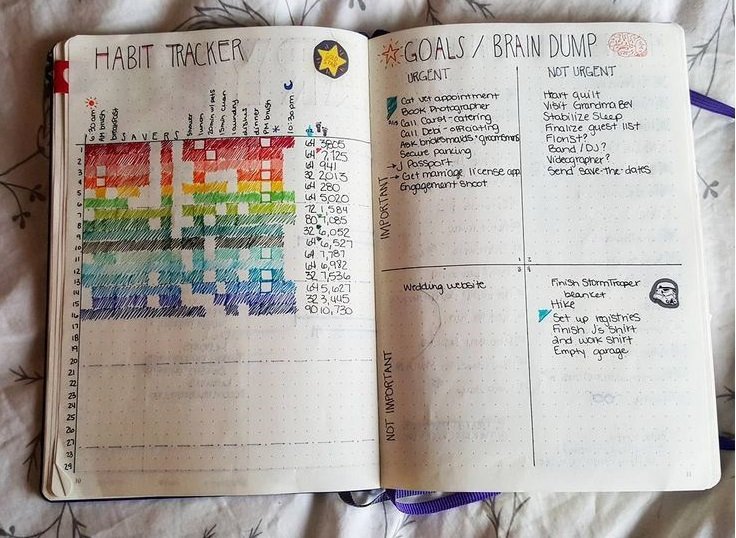 HABIT TRACKER
6:30 am
AM brush
breakfast
S A V E R S
shower
lunch
15min clean
laundry
dishes
dinner
PM brush
10:30 pm
1 64 3805
2 64 2,125
3 64 941
4 32 2,013
5 64 280
6 64 5,020
7 72 1,584
8 80 7,085
9 32 6,052
10 64 6,527
11 64 7,787
12 64 6,982
13 32 7,536
14 64 5,627
15 32 3,445
16 90 10,730
17
18
19
20
21
22
23
24
25
26
27
28
29
10
GOALS / BRAIN DUMP
URGENT
NOT URGENT
IMPORTANT
Cat vet appointment
Book Photographer
Call Carol - catering
Call Debi - officiating
Ask bridesmaids + groomsmen
Secure parking
→ J Passport
→ Get marriage license app
Engagement Shoot
1
Heart quilt
Visit Grandma Bev
Stabilize Sleep
Finalize guest list
Florist?
Band/DJ?
Videographer?
Send save-the-dates
2
NOT IMPORTANT
3
Wedding website
4
Finish StormTrooper
blanket
Hike
Set up registries
Finish J's shirt
2nd work shirt
Empty garage
11